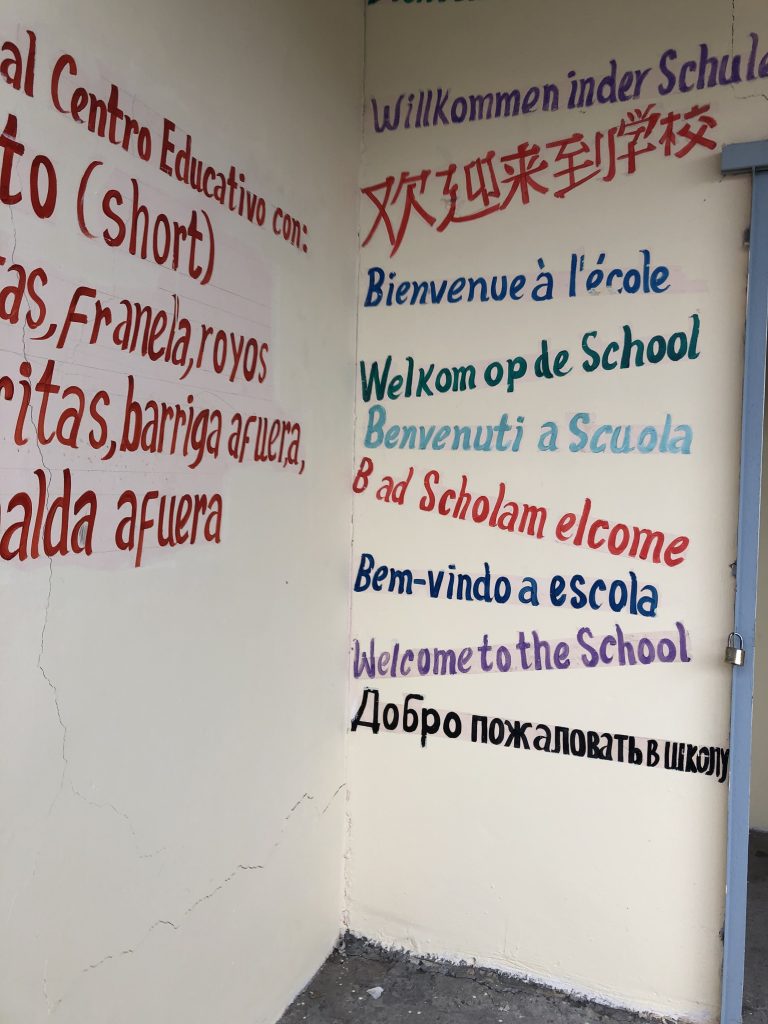 al Centro Educativo con:
(short)
Franela, royos
barriga afuera,
afuera
Willkommen inder Schule
欢迎来到学校
Bienvenue à l'école
Welkom op de School
Benvenuti a Scuola
B ad Scholam elcome
Bem-vindo a escola
Welcome to the School
Добро пожаловать в школу